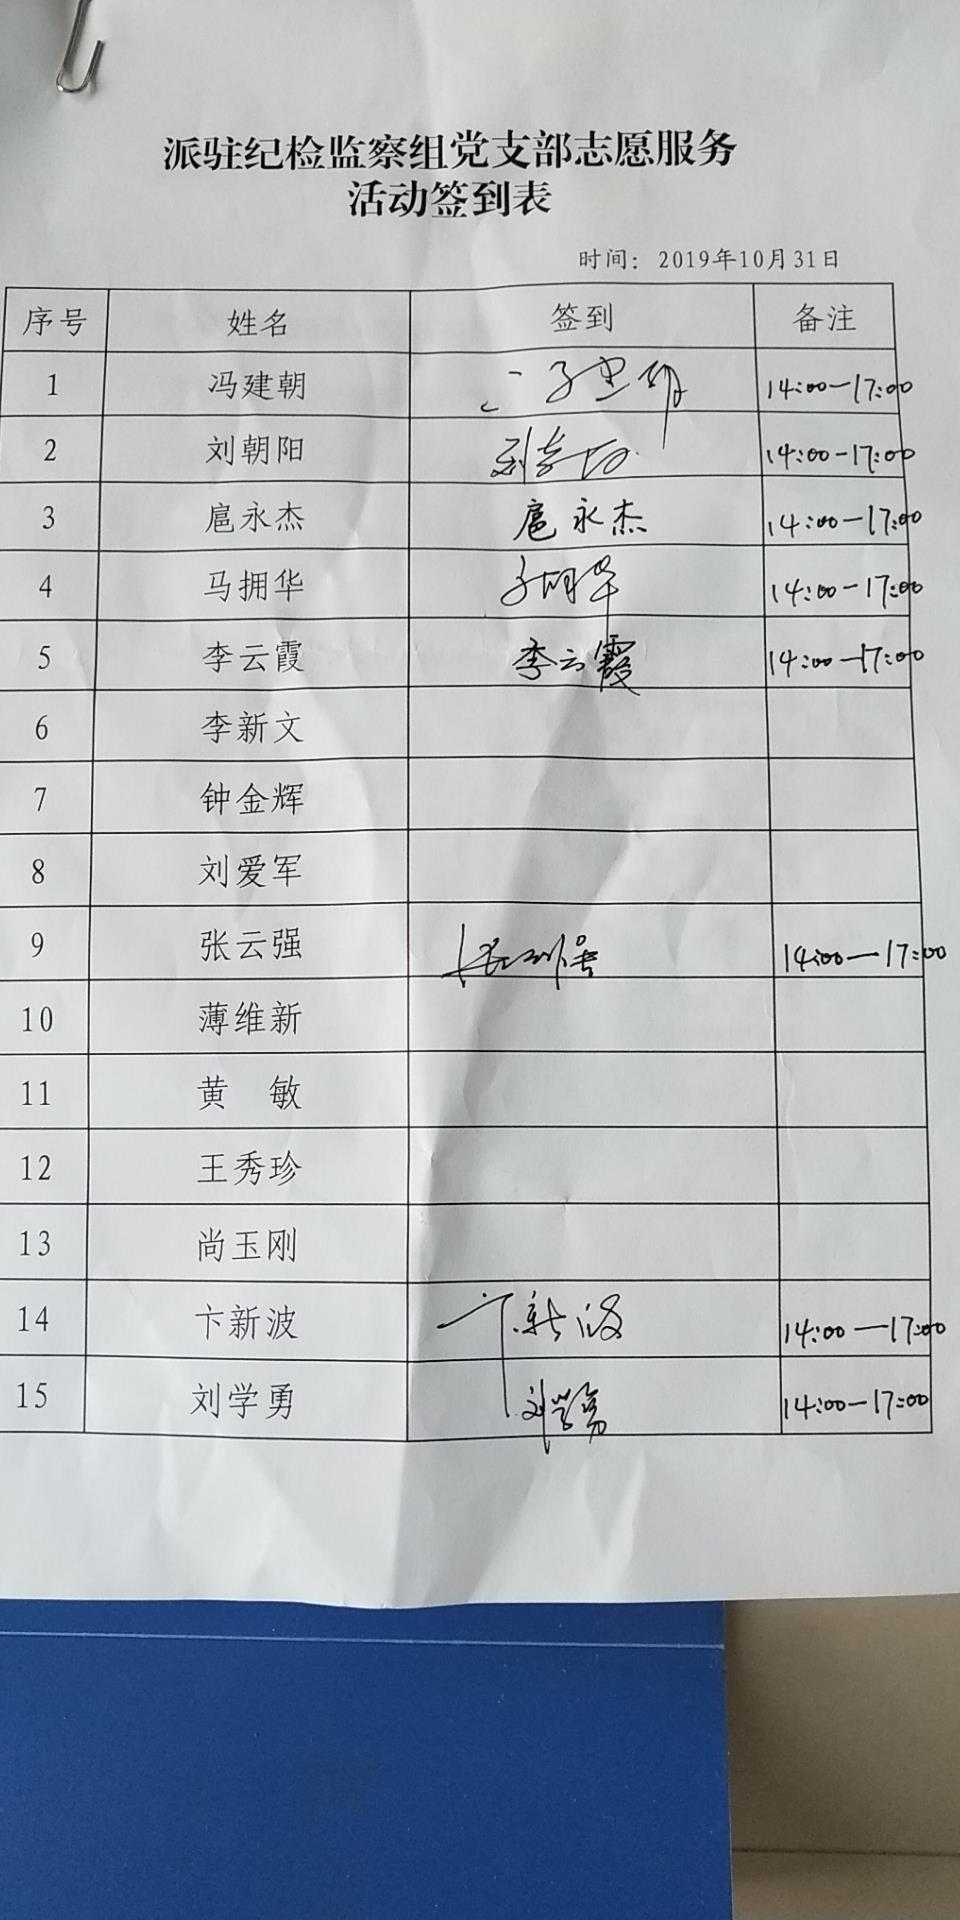 派驻纪检监察组党支部志愿服务
活动签到表
时间：2019年10月31日
序号 姓名 签到 备注
1 冯建朝 冯建朝 14:00—17:00
2 刘朝阳 刘朝阳 14:00—17:00
3 扈永杰 扈永杰 14:00—17:00
4 马拥华 马拥华 14:00—17:00
5 李云霞 李云霞 14:00—17:00
6 李新文
7 钟金辉
8 刘爱军
9 张云强 张云强 14:00—17:00
10 薄维新
11 黄 敏
12 王秀珍
13 尚玉刚
14 卞新波 卞新波 14:00—17:00
15 刘学勇 刘学勇 14:00—17:00